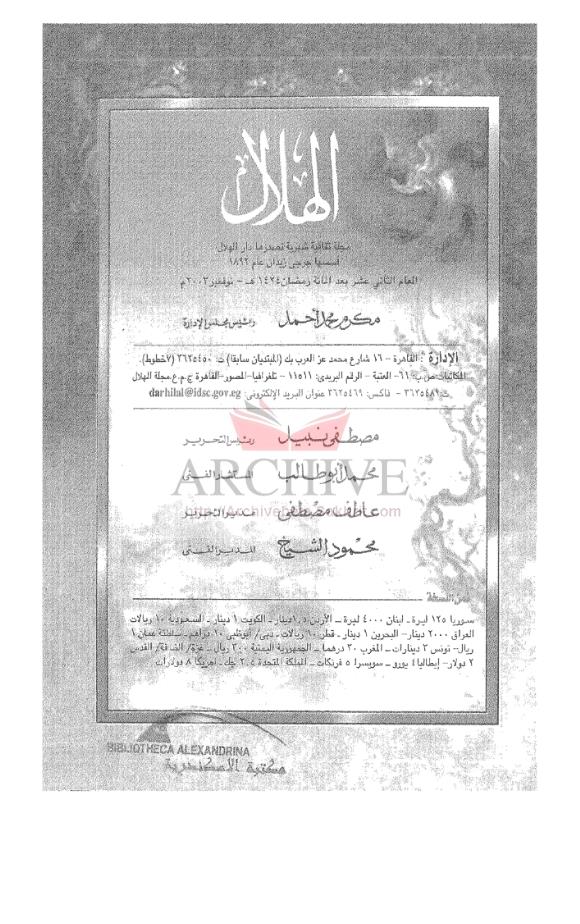 الهلال
مجلة ثقافية شهرية تصدرها دار الهلال
أسسها جرجى زيدان عام ١٨٩٢
العام الثانى عشر بعد المائة رمضان ١٤٢٤ هـ - نوفمبر ٢٠٠٣م
مكرم محمد أحمد رئيس مجلس الإدارة
الإدارة : القاهرة - ١٦ شارع محمد عز العرب بك (المبتديان سابقا) ت: ٣٦٢٥٤٥٠ (٧خطوط).
المكاتبات: ص.ب: ٦١- العتبة - الرقم البريدى: ١١٥١١ - تلغرافيا- المصور- القاهرة ج.م.ع. مجلة الهلال
ت: ٣٦٢٥٤٨١ - فاكس: ٣٦٢٥٤٦٩ عنوان البريد الإلكترونى: darhilal@idsc.gov.eg
مصطفى نبيل رئيس التحرير
محمد أبو طالب المستشار الفنى
ARCHIVE
عاطف مصطفى مدير التحرير
محمود الشيخ المدير الفنى
ثمن النسخة
سوريا ١٢٥ ليرة - لبنان ٤٠٠٠ ليرة - الأردن ١,٥ دينار - الكويت ١ دينار - السعودية ١٠ ريالات
العراق ٢٠٠٠ دينار- البحرين ١ دينار- قطر ١٠ ريالات - دبى/ أبوظبى ١٠ دراهم - سلطنة عمان ١
ريال- تونس ٣ دينارات - المغرب ٣٠ درهما - الجمهورية اليمنية ٣٠٠ ريال - غزة/ الضفة/ القدس
٢ دولار- إيطاليا ٤ يورو - سويسرا ٥ فرنكات - المملكة المتحدة ٢.٥ جك - أمريكا ٨ دولارات
BIBLIOTHECA ALEXANDRINA
مكتبة الإسكندرية